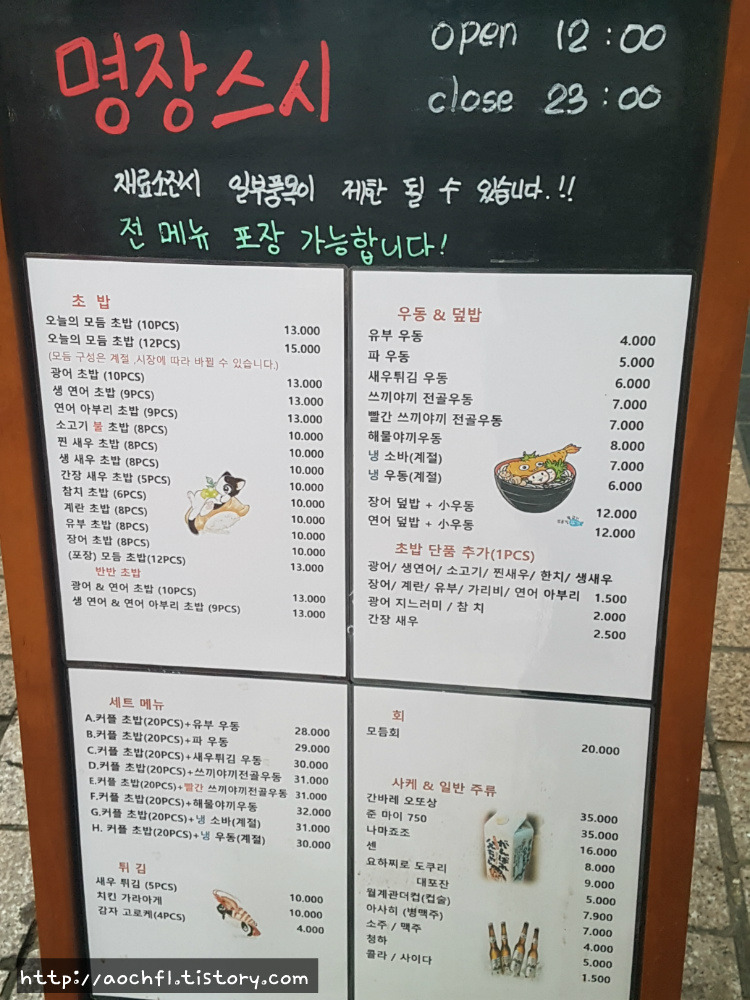 명장스시
open 12:00
close 23:00
재료소진시 일부품목이 제한 될 수 있습니다.!!
전 메뉴 포장 가능합니다!
초 밥
오늘의 모듬 초밥 (10PCS) 13.000
오늘의 모듬 초밥 (12PCS) 15.000
(모듬 구성은 계절 ,시장에 따라 바뀔 수 있습니다.)
광어 초밥 (10PCS) 13.000
생 연어 초밥 (9PCS) 13.000
연어 아부리 초밥 (9PCS) 13.000
소고기 불 초밥 (8PCS) 10.000
찐 새우 초밥 (8PCS) 10.000
생 새우 초밥 (8PCS) 10.000
간장 새우 초밥 (5PCS) 10.000
참치 초밥 (6PCS) 10.000
계란 초밥 (8PCS) 10.000
유부 초밥 (8PCS) 10.000
장어 초밥 (8PCS) 10.000
(포장) 모듬 초밥(12PCS) 13.000
반반 초밥
광어 & 연어 초밥 (10PCS) 13.000
생 연어 & 연어 아부리 초밥 (9PCS) 13.000
우동 & 덮밥
유부 우동 4.000
파 우동 5.000
새우튀김 우동 6.000
쓰끼야끼 전골우동 7.000
빨간 쓰끼야끼 전골우동 7.000
해물야끼우동 8.000
냉 소바(계절) 7.000
냉 우동(계절) 6.000
장어 덮밥 + 小우동 12.000
연어 덮밥 + 小우동 12.000
초밥 단품 추가(1PCS)
광어/ 생연어/ 소고기/ 찐새우/ 한치/ 생새우
장어/ 계란/ 유부/ 가리비/ 연어 아부리 1.500
광어 지느러미 / 참 치 2.000
간장 새우 2.500
세트 메뉴
A.커플 초밥(20PCS)+유부 우동 28.000
B.커플 초밥(20PCS)+파 우동 29.000
C.커플 초밥(20PCS)+새우튀김 우동 30.000
D.커플 초밥(20PCS)+쓰끼야끼전골우동 31.000
E.커플 초밥(20PCS)+빨간 쓰끼야끼전골우동 31.000
F.커플 초밥(20PCS)+해물야끼우동 32.000
G.커플 초밥(20PCS)+냉 소바(계절) 31.000
H. 커플 초밥(20PCS)+냉 우동(계절) 30.000
튀 김
새우 튀김 (5PCS) 10.000
치킨 가라아게 10.000
감자 고로케(4PCS) 4.000
회
모듬회 20.000
사케 & 일반 주류
간바레 오또상 35.000
준 마이 750 35.000
나마죠조 16.000
센 8.000
요하찌로 도쿠리 9.000
대포잔 5.000
월계관더컵(컵술) 7.900
아사히 (병맥주) 7.000
소주 / 맥주 4.000
청하 5.000
콜라 / 사이다 1.500
http://aochfl.tistory.com